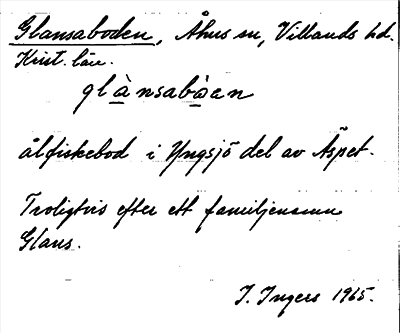 Glansaboden, Åhus sn, Villands hd.
Krist. län.
glànsabòen
ålfiskebod i Yngsjö del av Äspet.
Troligtvis efter ett familjenamn
Glans.
I. Ingers 1965.